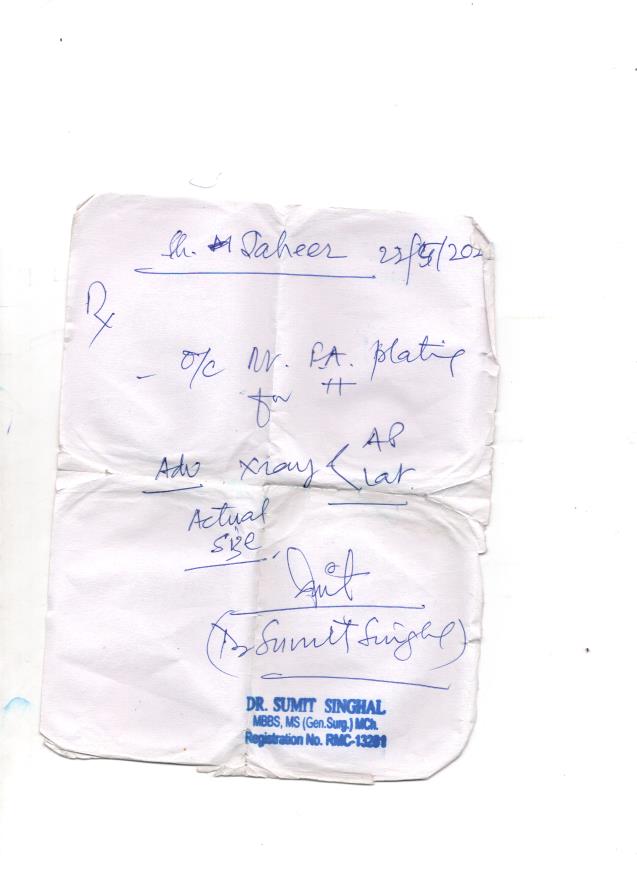 Taheer 22/5/202
Rx
- o/c
for #
Adv xray < AP
Lat.
Actual
size
(Dr Sumit Singhal)
DR. SUMIT SINGHAL
MBBS, MS (Gen.Surg.) MCh.
Registration No. RMC-13201